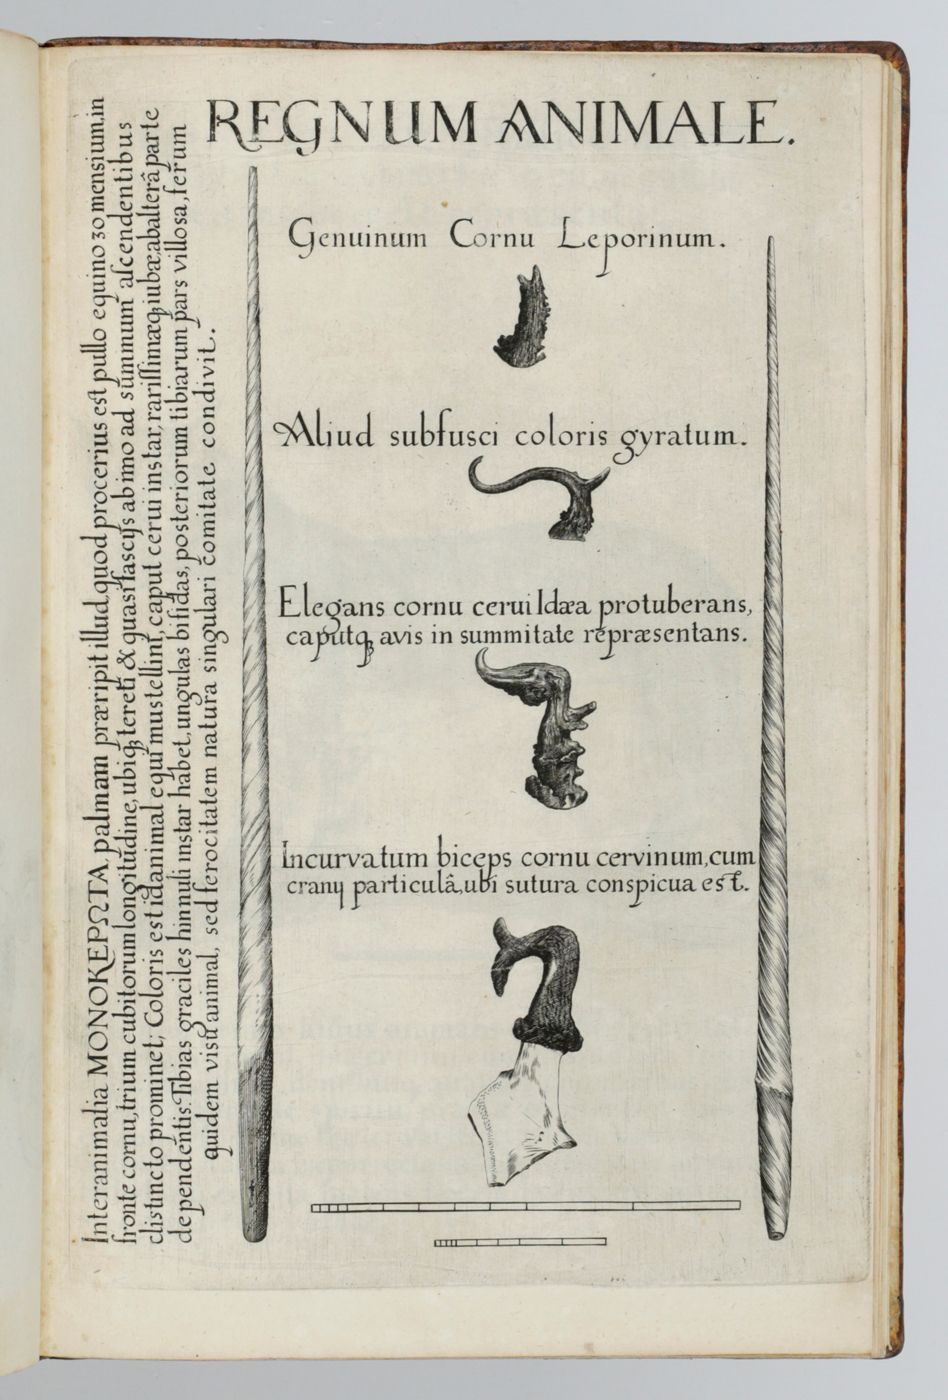 REGNUM ANIMALE.
Genuinum Cornu Leporinum.
Aliud subfusci coloris gyratum.
Elegans cornu cerui Idæa protuberans,
caputqꝫ avis in summitate repræsentans.
Incurvatum biceps cornu cervinum, cum
cranij particulâ, ubi sutura conspicua est.
Inter animalia ΜΟΝΟΚΕΡΩΤΑ palmam præripit illud, quod procerius est pullo equino 30 mensium, in
fronte cornu, trium cubitorum longitudine, ubiqꝫ tereti & quasi fascijs ab imo ad summum ascendentibus
distincto prominet; Coloris est id animal equi mustellini, caput cerui instar, rarissimæqꝫ iubæ ab alterâ parte
dependentis. Tibias graciles hinnuli instar habet, ungulas bifidas, posteriorum tibiarum pars villosa, ferum
quidem visu animal, sed ferocitatem natura singulari comitate condivit.